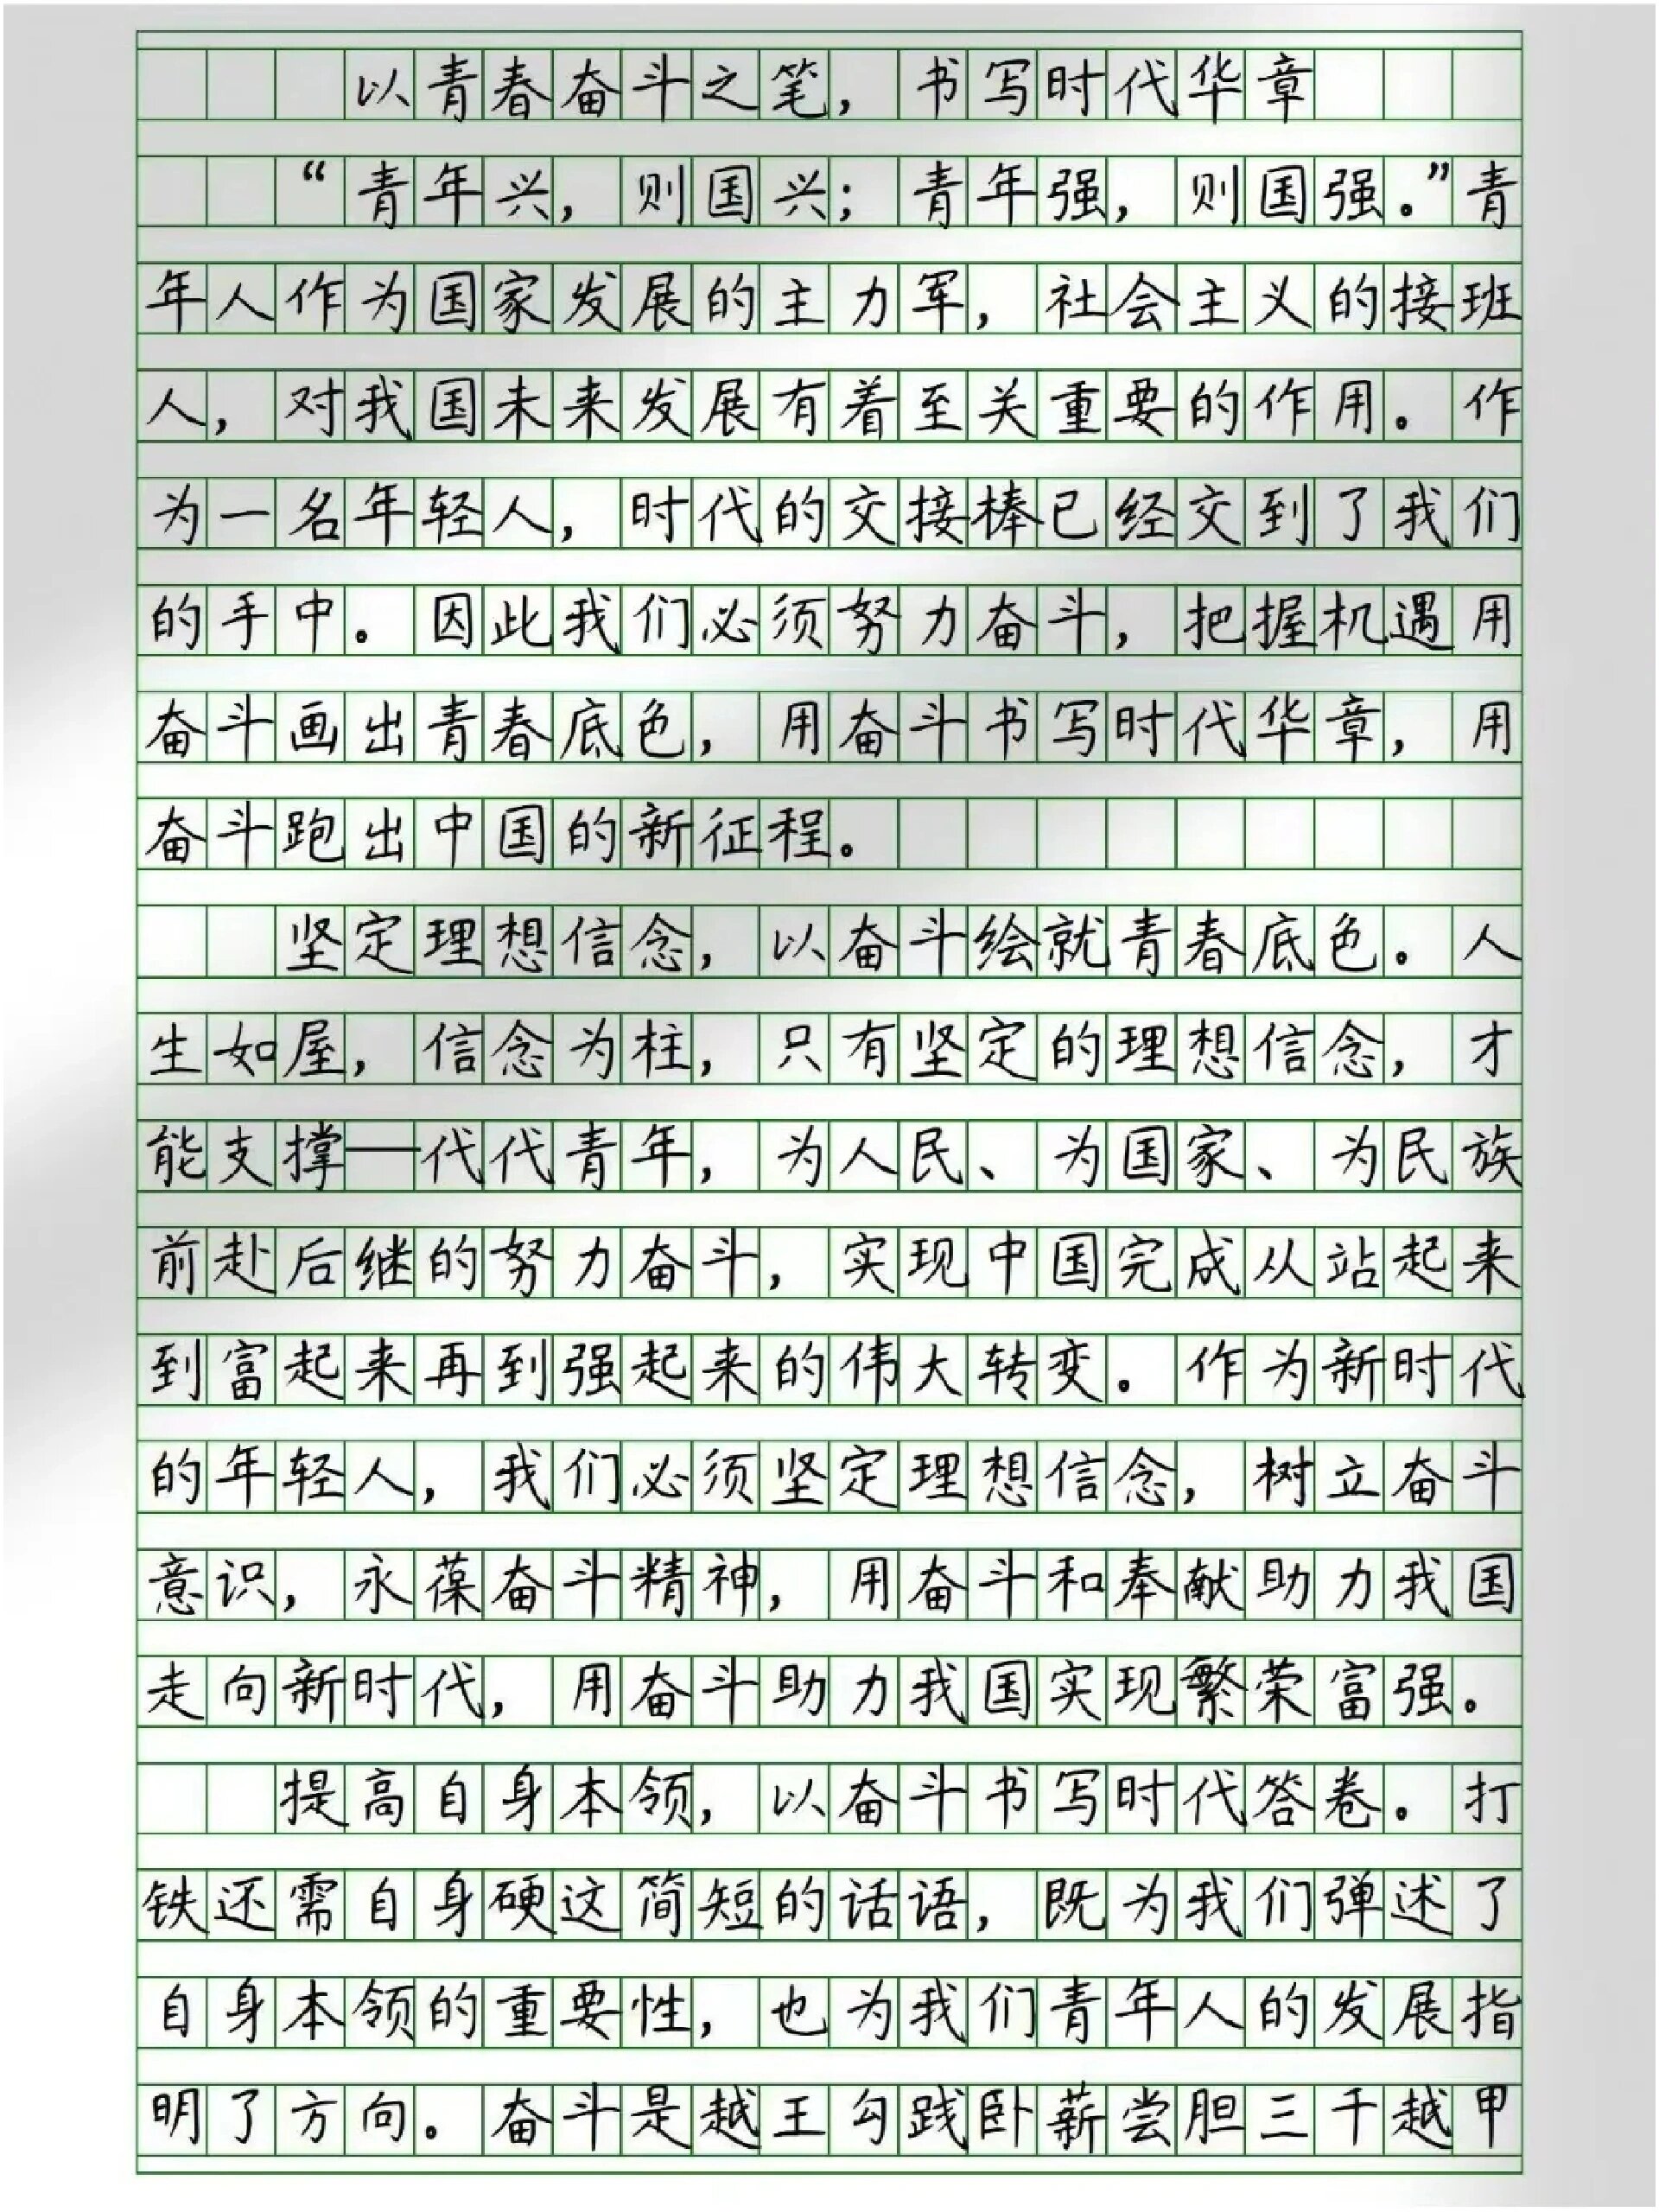 以青春奋斗之笔，书写时代华章
“青年兴，则国兴；青年强，则国强。”青
年人作为国家发展的主力军，社会主义的接班
人，对我国未来发展有着至关重要的作用。作
为一名年轻人，时代的交接棒已经交到了我们
的手中。因此我们必须努力奋斗，把握机遇用
奋斗画出青春底色，用奋斗书写时代华章，用
奋斗跑出中国的新征程。
坚定理想信念，以奋斗绘就青春底色。人
生如屋，信念为柱，只有坚定的理想信念，才
能支撑一代代青年，为人民、为国家、为民族
前赴后继的努力奋斗，实现中国完成从站起来
到富起来再到强起来的伟大转变。作为新时代
的年轻人，我们必须坚定理想信念，树立奋斗
意识，永葆奋斗精神，用奋斗和奉献助力我国
走向新时代，用奋斗助力我国实现繁荣富强。
提高自身本领，以奋斗书写时代答卷。打
铁还需自身硬这简短的话语，既为我们弹述了
自身本领的重要性，也为我们青年人的发展指
明了方向。奋斗是越王勾践卧薪尝胆三千越甲